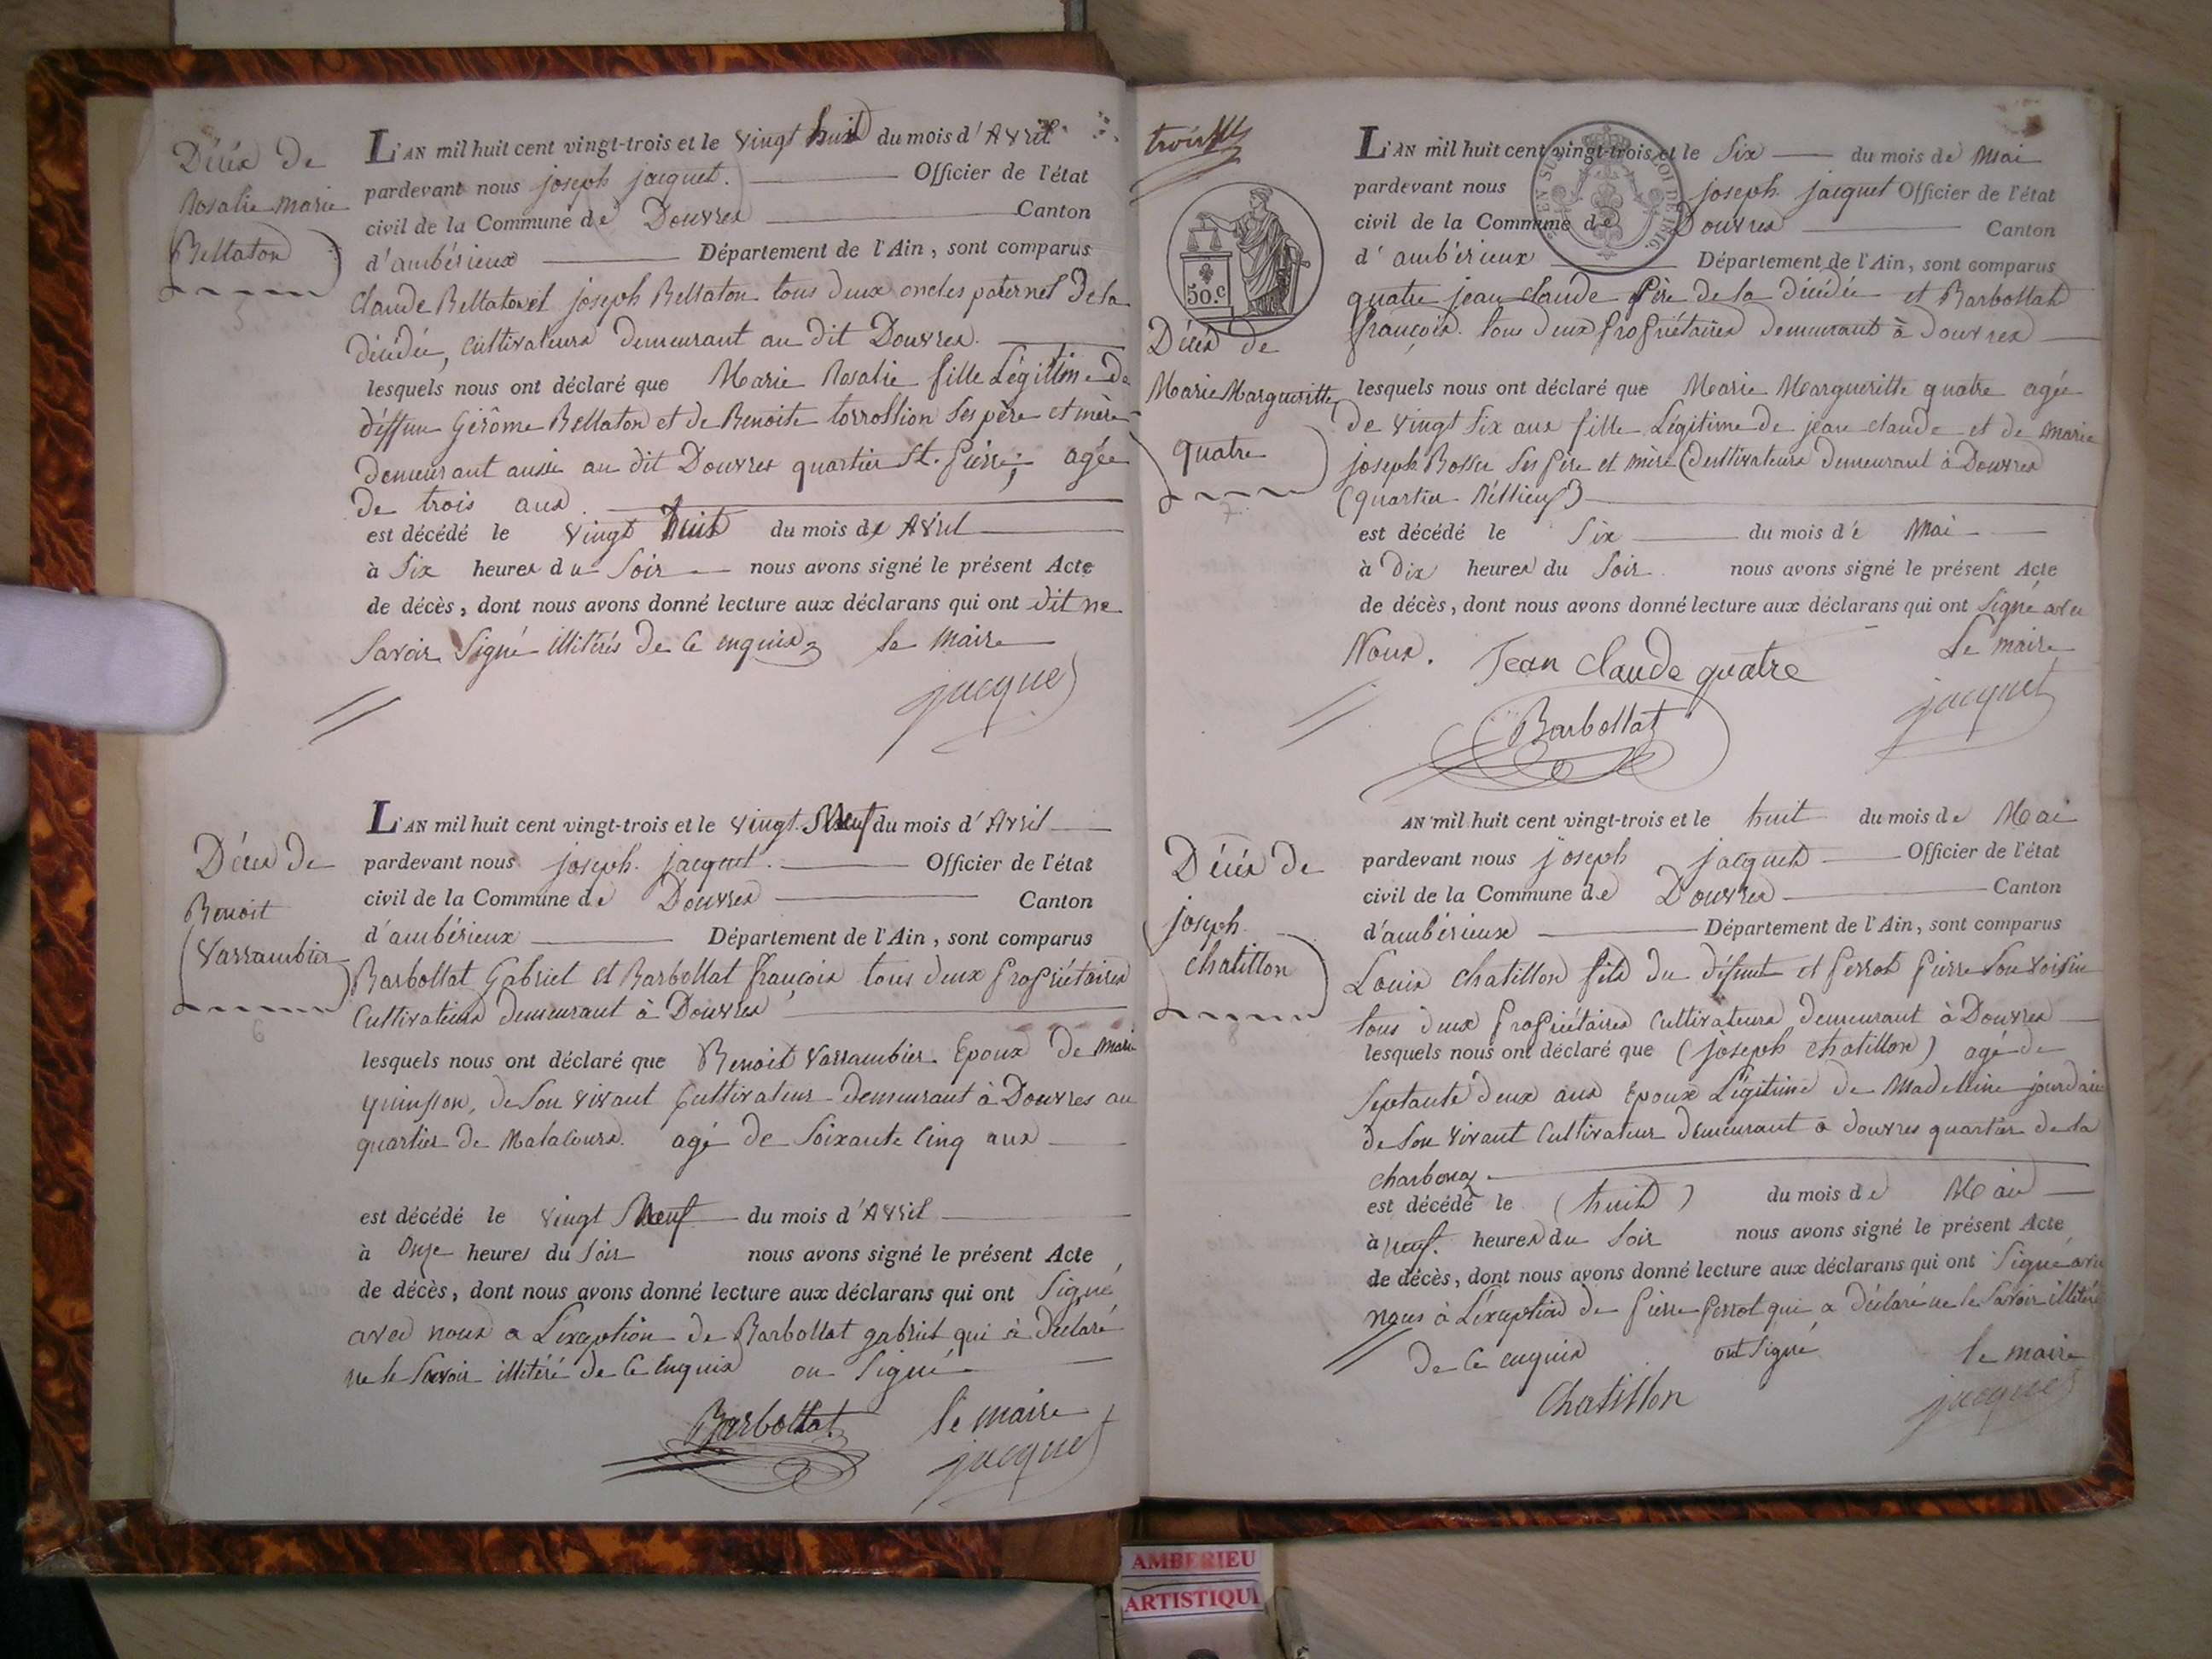 Décès de
Rosalie Marie
Bellaton
L'AN mil huit cent vingt-trois et le vingt huit du mois d'Avril
pardevant nous joseph jacquet. Officier de l'état
civil de la Commune de Douvres Canton
d'ambérieux Département de l'Ain, sont comparus
Claude Bellaton et joseph Bellaton tous deux oncles paternel de la
décédée, cultivateurs demeurant au dit Douvres.
lesquels nous ont déclaré que Marie Rosalie fille Légitime de
déffun Gérôme Bellaton et de Benoite torrollion ses père et mère
demeurant aussi au dit Douvres quartier St. pierre; agée
de trois ans.
est décédé le vingt huit du mois de Avril
à Six heures du Soir nous avons signé le présent Acte
de décès, dont nous avons donné lecture aux déclarans qui ont dit ne
Savoir Signé illitérés de ce enquis le maire
jacquet
5
Décès de
Benoit
Varrambier
6
L'AN mil huit cent vingt-trois et le vingt Neuf du mois d'Avril
pardevant nous joseph jacquet. Officier de l'état
civil de la Commune de Douvres Canton
d'ambérieux Département de l'Ain, sont comparus
Barbollat Gabriel et Barbollat françois tous deux propriétaires
Cultivateurs demeurant à Douvres
lesquels nous ont déclaré que Benoit Varrambier Epoux de Marie
quinson, de son vivant Cultivateur demeurant à Douvres au
quartier de Malacours. agé de Soixante Cinq ans
est décédé le vingt Neuf du mois d'Avril
à Onze heures du Soir nous avons signé le présent Acte
de décès, dont nous avons donné lecture aux déclarans qui ont Signé
avec nous a L'exception de Barbollat gabriel qui a déclaré
ne le Savoir illitéré de Ce Enquis on Signé
Barbollat le maire
jacquet
trois
50.c
Décès de
Marie Margueritte
quatre
7
L'AN mil huit cent vingt-trois et le Six du mois de Mai
pardevant nous joseph jacquet Officier de l'état
civil de la Commune de Douvres Canton
d'ambérieux Département de l'Ain, sont comparus
quatre jean claude père de la décédée et Barbollat
françois. tous deux propriétaires demeurant à douvres
lesquels nous ont déclaré que Marie Margueritte quatre agée
de vingt Six ans fille Légitime de jean claude et de marie
joseph Bossu Ses père et mère Cultivateurs demeurant à Douvres
(quartier Réllieux)
est décédé le Six du mois de Mai
à Dix heures du Soir nous avons signé le présent Acte
de décès, dont nous avons donné lecture aux déclarans qui ont Signé avec
Nous. Jean Claude quatre Le maire
Barbollat jacquet
Décès de
joseph
chatillon
8
AN mil huit cent vingt-trois et le huit du mois de Mai
pardevant nous joseph jacquet Officier de l'état
civil de la Commune de Douvres Canton
d'ambérieux Département de l'Ain, sont comparus
Louis chatillon fils du défunt et perrot pierre Son voisin
tous deux propriétaires Cultivateurs demeurant à Douvres
lesquels nous ont déclaré que (joseph chatillon) agé de
Septante deux ans Epoux Légitime de Madelline jourdain
de Son vivant Cultivateur demeurant a douvres quartier de la
Charbona
est décédé le (huit) du mois de Mai
à neuf. heures du Soir nous avons signé le présent Acte
de décès, dont nous avons donné lecture aux déclarans qui ont Signé avec
nous à L'exception de pierre perrot qui a déclaré ne le Savoir illitéré
de Ce enquis ont Signé le maire
Chatillon jacquet
AMBERIEU
ARTISTIQU